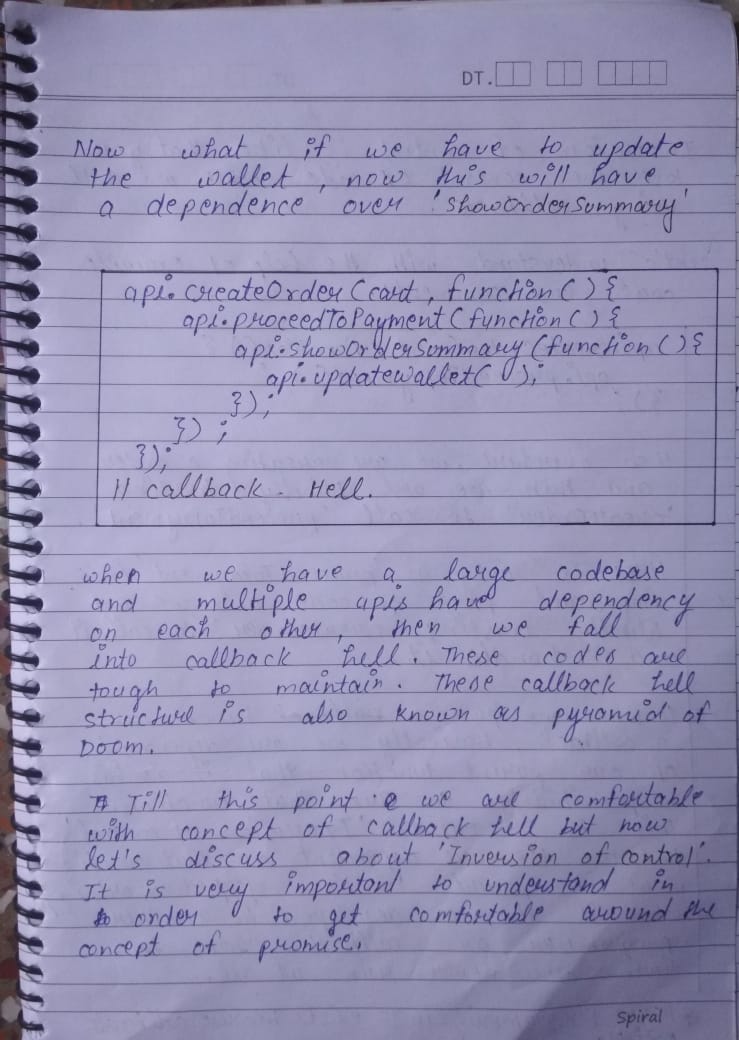 DT.
Now what if we have to update
the wallet, now this will have
a dependence over 'showOrderSummary'
api.createOrder(cart, function(){
api.proceedToPayment(function(){
api.showOrderSummary(function(){
api.updatewallet();
});
});
});
// callback Hell.
when we have a large codebase
and multiple apis have dependency
on each other, then we fall
into callback hell. These codes are
tough to maintain. These callback hell
structure is also known as pyramid of
Doom.
Till this point we are comfortable
with concept of callback hell but now
let's discuss about 'Inversion of control'.
It is very important to understand in
order to get comfortable around the
concept of promise.
Spiral